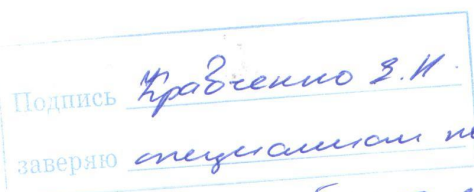 Подпись Кравченко З.Н.
заверяю специалист